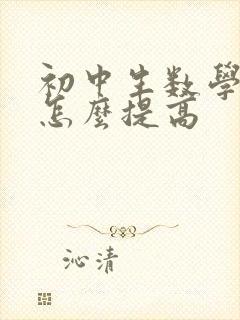 初中生数學
怎麼提高
沁清